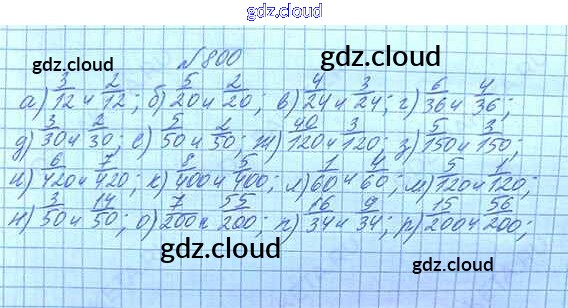 gdz.cloud
№ 800
gdz.cloud gdz.cloud
а) 3/12 и 2/12; б) 5/20 и 2/20; в) 4/24 и 3/24; г) 6/36 и 4/36;
д) 3/30 и 2/30; е) 5/50 и 2/50; ж) 40/120 и 3/120; з) 5/150 и 3/150;
и) 6/420 и 7/420; к) 8/400 и 5/400; л) 1/60 и 4/60; м) 5/120 и 1/120;
н) 3/50 и 14/50; о) 7/200 и 55/200; п) 16/34 и 9/34; р) 15/200 и 56/200;
gdz.cloud gdz.cloud